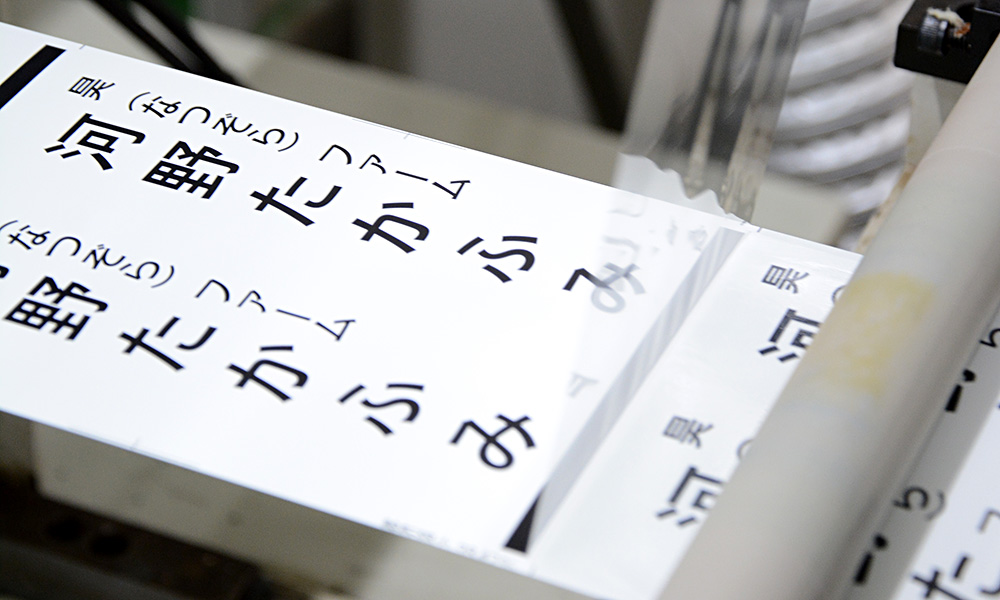 昊（なつぞら）ファーム
河野たかふみ
（なつぞら）ファーム
野たかふみ
昊
河
昊
河
ら）
た